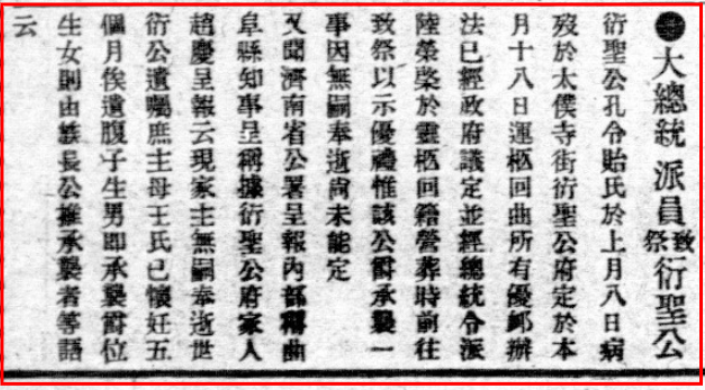 大總統派員致祭衍聖公
衍聖公孔令貽氏於上月八日病
歿於太僕寺街衍聖公府定於本
月十八日運柩回曲所有優邺辦
法已經政府議定並經總統令派
陸榮棨於靈柩回籍營葬時前往
致祭以示優禮惟該公爵承襲一
事因無嗣奉逝尚未能定
又聞濟南省公署呈報內部稱曲
阜縣知事呈稱據衍聖公府家人
趙慶呈報云現家主無嗣奉逝世
衍公遺囑庶主母王氏已懷妊五
個月俟遺腹子生男即承襲爵位
生女則由族長公推承襲者等語
云